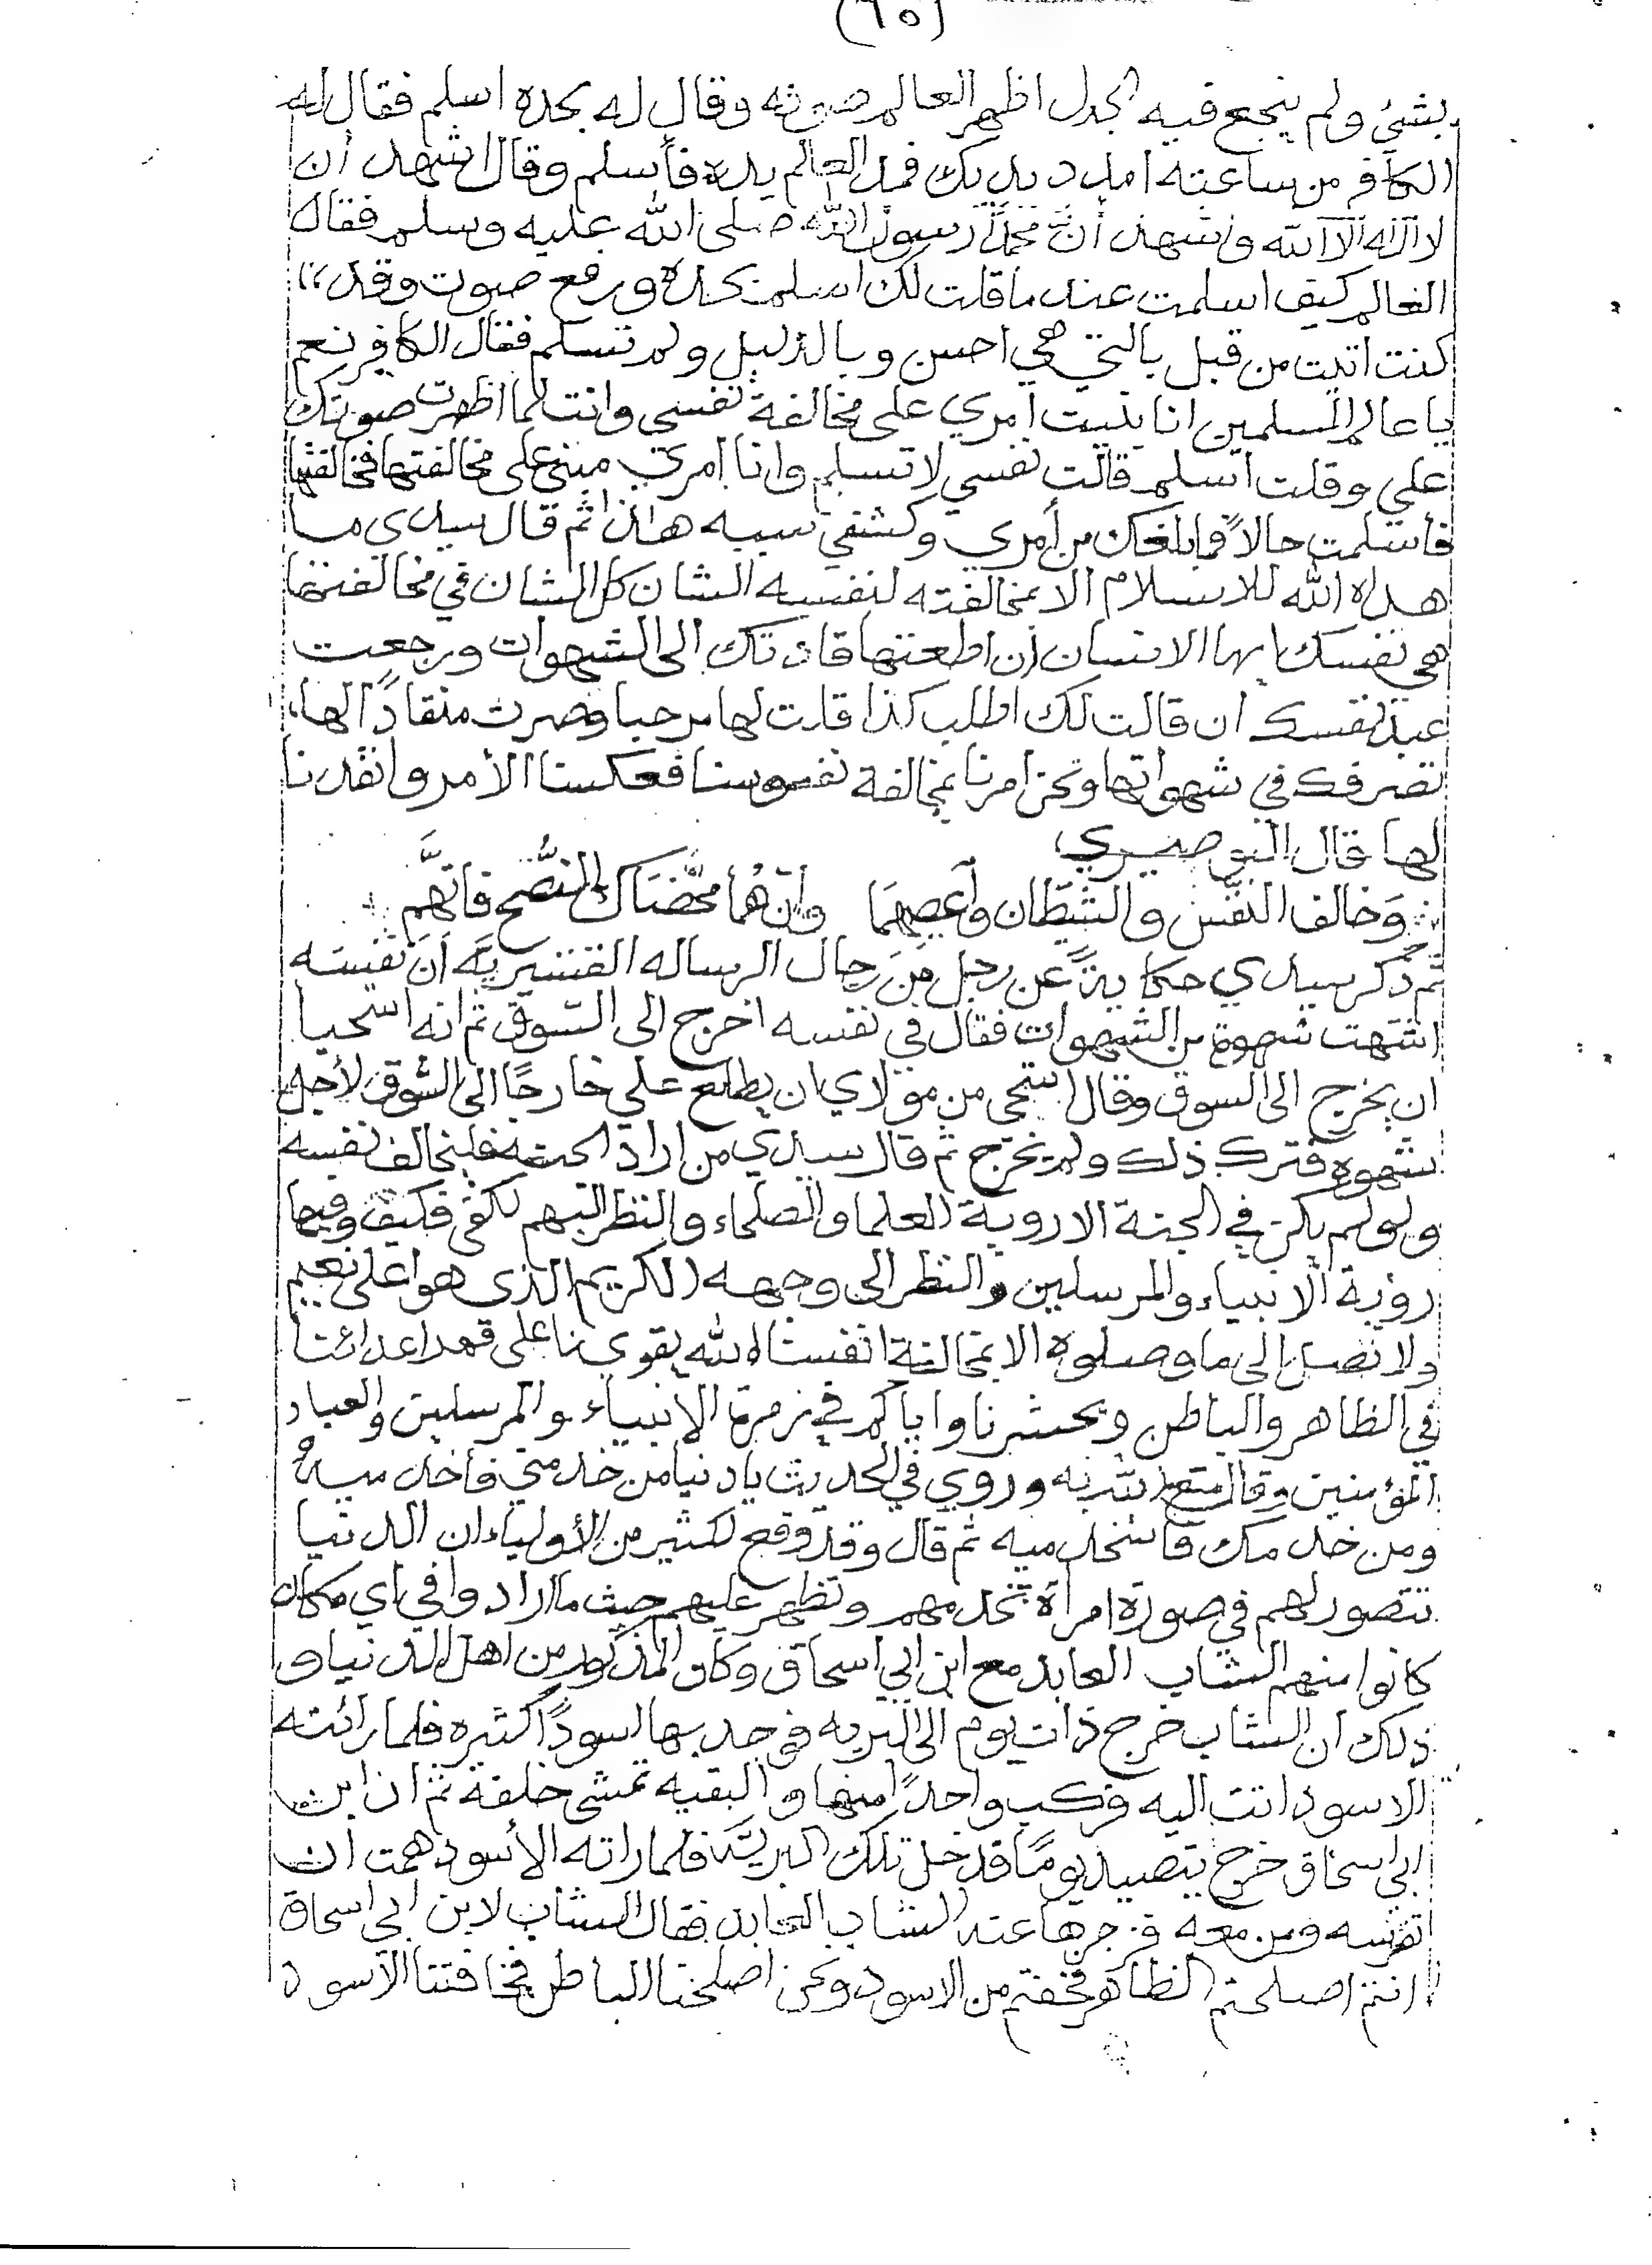 (٦٥)
بشئ ولم ينجع فيه الجدل اظهر العالم صوته وقال له بحده اسلم فقال له
الكافر من ساعته امدد يديك فمد العالم يده فأسلم وقال اشهد أن
لا اله الا الله واشهد أن محمدًا رسول الله صلى الله عليه وسلم فقال
العالم كيف اسلمت عند ما قلت لك اسلم بحده ورفع صوت وقد
كنت اتيت من قبل بالتي هي احسن وبالدليل ولم تسلم فقال الكافر نعم
يا عالم المسلمين انا بنيت امري على مخالفة نفسي وانت لما اظهرت صوتك
علي وقلت اسلم قالت نفسي لا تسلم وانا امري مبني على مخالفتها فخالفتها
فأسلمت حالاً فما بلغك من أمري وكشفي سببه هاذا ثم قال سيدي ما
هداه الله للاسلام الا بمخالفته لنفسه الشان كل الشان في مخالفتها
هي نفسك ايها الانسان إن اطعتها قادتك الى الشهوات ورجعت
عبد نفسك ان قالت لك اطلب كذا قلت لها مرحبا وصرت منقادًا لها،
تصرفك في شهواتها ونحن امرنا بمخالفة نفوسنا فعكسنا الأمر وانقدرنا
لها قال البوصيري
وَخالف النفْس والشيطان وأعصِهِمَا وإن هُمَا محَّضَاكَ النُّصح فاتَّهم
ثم ذكر سيدي حكاية عن رجل مِنَ رجال الرساله القشيريّه أنَ نفسَه
اشتهت شهوة من الشهوات فقال في نفسه اخرج الى السوق ثم انه استحيا
ان يخرج الى السوق وقال استحي من مولاي ان يطلع علي خارجًا الى السوق لأجل
شهوه فترك ذلك ولم يخرج ثم قال سيدي من اراد الجنه فليخالف نفسه
ولو لم يكن في الجنة الا روية العلما والصلحاء والنظر اليهم لكفى فكيف وفيها
روية الانبياء والمرسلين والنظر الى وجهه الكريم الذى هو اعلى نعيم
ولا نصل الى ما وصلوه الا بمخالفة انفسنا الله يقوي نا على قهر اعدائنا
في الظاهر والباطن ويحشرنا واياكم في زمرة الانبياء والمرسلين والعباد
المؤمنين وقال متع الله به وروي في الحديث يا دنيا من خدمني فأخدميهُ
ومن خدمك فاستخدميه ثم قال وقد وقع لكثير من الأولياء ان الدنيا
تتصور لهم في صورة امرأة تخدمهم وتظهر عليهم حيث ما ارادوا في اي مكان
كانوا منهم الشاب العابد مع ابن ابي اسحاق وكان المذكور من اهل الدنيا و
ذلك ان الشاب خرج ذات يوم الى البريه فوجد بها اسودًا كثيره فلما رائته
الاسود اتت اليه فركب واحدًا منها والبقيه تمشى خلفه ثم ان ابن
ابي اسحاق خرج يتصيد يومًا قد خل تلك البريّه فلما راته الأسود همت ان
تفرسه ومن معه فزجرها عنه الشاب العابد فقال الشاب لابن ابي اسحاق
انتم اصلحتم الظاهر فخفتم من الاسود ونحن اصلحنا الباطن فخافتنا الاسود